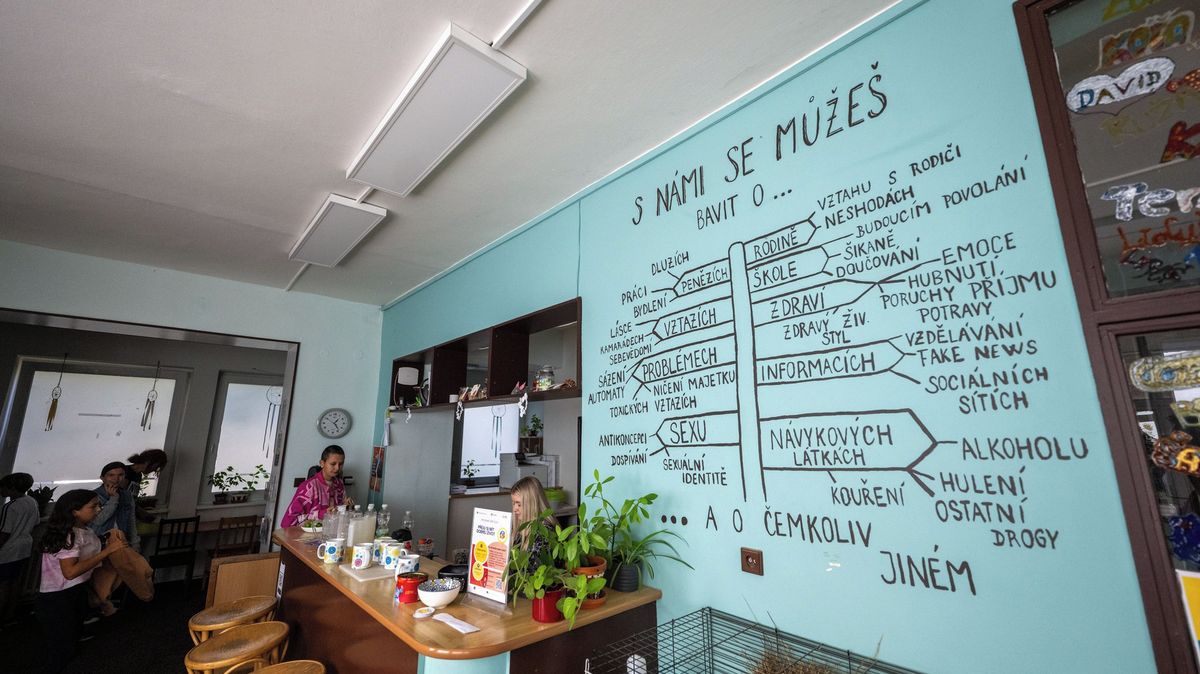 S NÁMI SE MŮŽEŠ
BAVIT O ...
RODINĚ
VZTAHU S RODIČI
NESHODÁCH
ŠKOLE
BUDOUCÍM POVOLÁNÍ
ŠIKANĚ
DOUČOVÁNÍ
ZDRAVÍ
EMOCE
HUBNUTÍ
PORUCHY PŘÍJMU
POTRAVY
ZDRAVÝ ŽIV.
STYL
INFORMACÍCH
VZDĚLÁVÁNÍ
FAKE NEWS
SOCIÁLNÍCH
SÍTÍCH
NÁVYKOVÝCH
LÁTKÁCH
ALKOHOLU
HULENÍ
KOUŘENÍ
OSTATNÍ
DROGY
PENĚZÍCH
DLUZÍCH
PRÁCI
BYDLENÍ
VZTAZÍCH
LÁSCE
KAMARÁDECH
SEBEVĚDOMÍ
PROBLÉMECH
SÁZENÍ
AUTOMATY
NIČENÍ MAJETKU
TOXICKÝCH VZTAZÍCH
SEXU
ANTIKONCEPCI
DOSPÍVÁNÍ
SEXUÁLNÍ
IDENTITĚ
.... A O ČEMKOLIV
JINÉM
DAVID